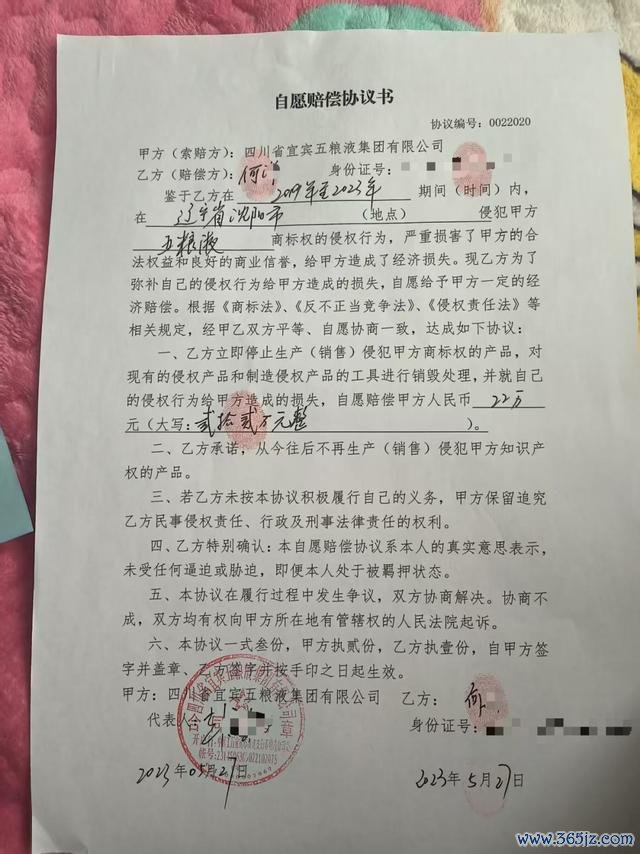 自愿赔偿协议书
协议编号：0022020
甲方（索赔方）：四川省宜宾五粮液集团有限公司
乙方（赔偿方）：何 身份证号：
鉴于乙方在 2019年至2023年 期间（时间）内，
在 辽宁省沈阳市 （地点） 侵犯甲方
五粮液 商标权的侵权行为，严重损害了甲方的合
法权益和良好的商业信誉，给甲方造成了经济损失。现乙方为了
弥补自己的侵权行为给甲方造成的损失，自愿给予甲方一定的经
济赔偿。根据《商标法》、《反不正当竞争法》、《侵权责任法》等
相关规定，经甲乙双方平等、自愿协商一致，达成如下协议：
一、乙方立即停止生产（销售）侵犯甲方商标权的产品，对
现有的侵权产品和制造侵权产品的工具进行销毁处理，并就自己
的侵权行为给甲方造成的损失，自愿赔偿甲方人民币 22万
元（大写：贰拾贰万元整 ）。
二、乙方承诺，从今往后不再生产（销售）侵犯甲方知识产
权的产品。
三、若乙方未按本协议积极履行自己的义务，甲方保留追究
乙方民事侵权责任、行政及刑事法律责任的权利。
四、乙方特别确认：本自愿赔偿协议系本人的真实意思表示，
未受任何逼迫或胁迫，即便本人处于被羁押状态。
五、本协议在履行过程中发生争议，双方协商解决。协商不
成，双方均有权向甲方所在地有管辖权的人民法院起诉。
六、本协议一式叁份，甲方执贰份，乙方执壹份，自甲方签
字并盖章、乙方签字并按手印之日起生效。
甲方：四川省宜宾五粮液集团有限公司 乙方：何
代表人： 身份证号：
2023年05月27日 2023年5月27日
www.365jz.com